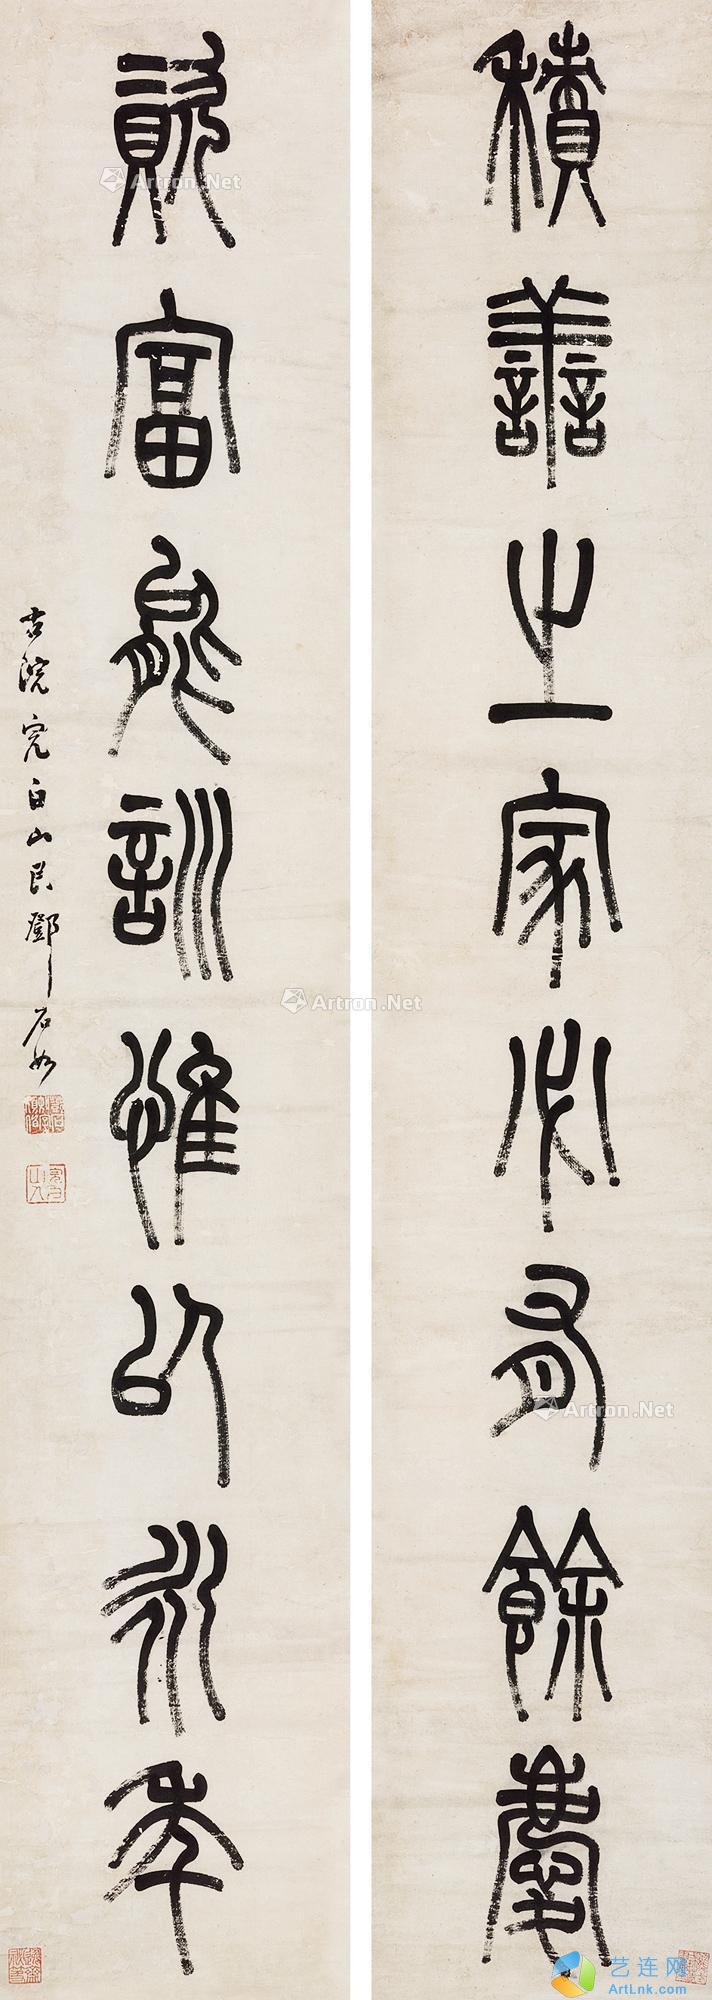 積善之家必有餘慶
資富能訓惟以永年
古浣完白山民鄧石如
完白山人
Artron.Net
Artron.Net
Artron.Net
艺连网
ArtLnk.com